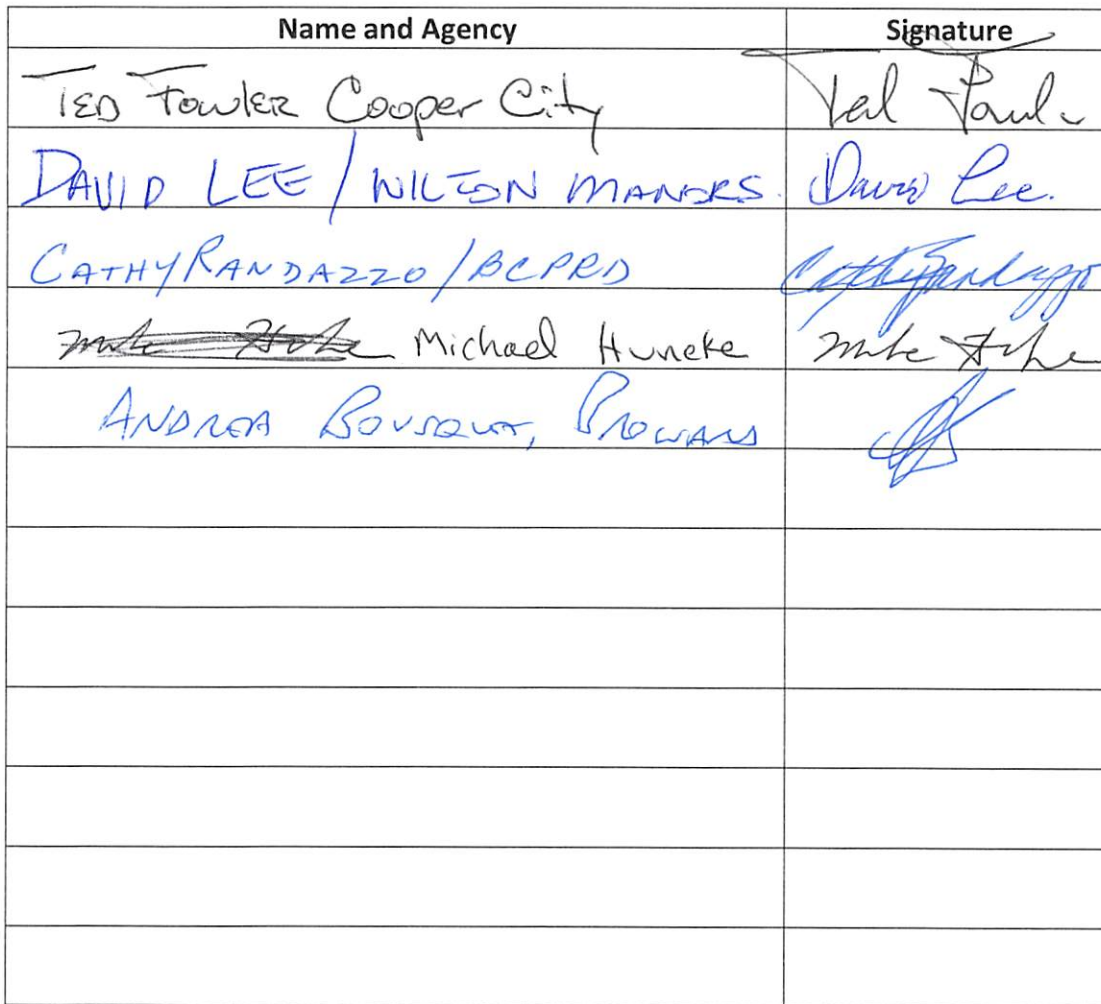 Name and Agency Signature
TED FOWLER Cooper City Ted
DAVID LEE / WILTON MANORS. David Lee.
CATHY RANDAZZO / BCPRD Cathy Randazzo
Michael Huneke Mike
ANDREA BOUSQUET, BROWARD